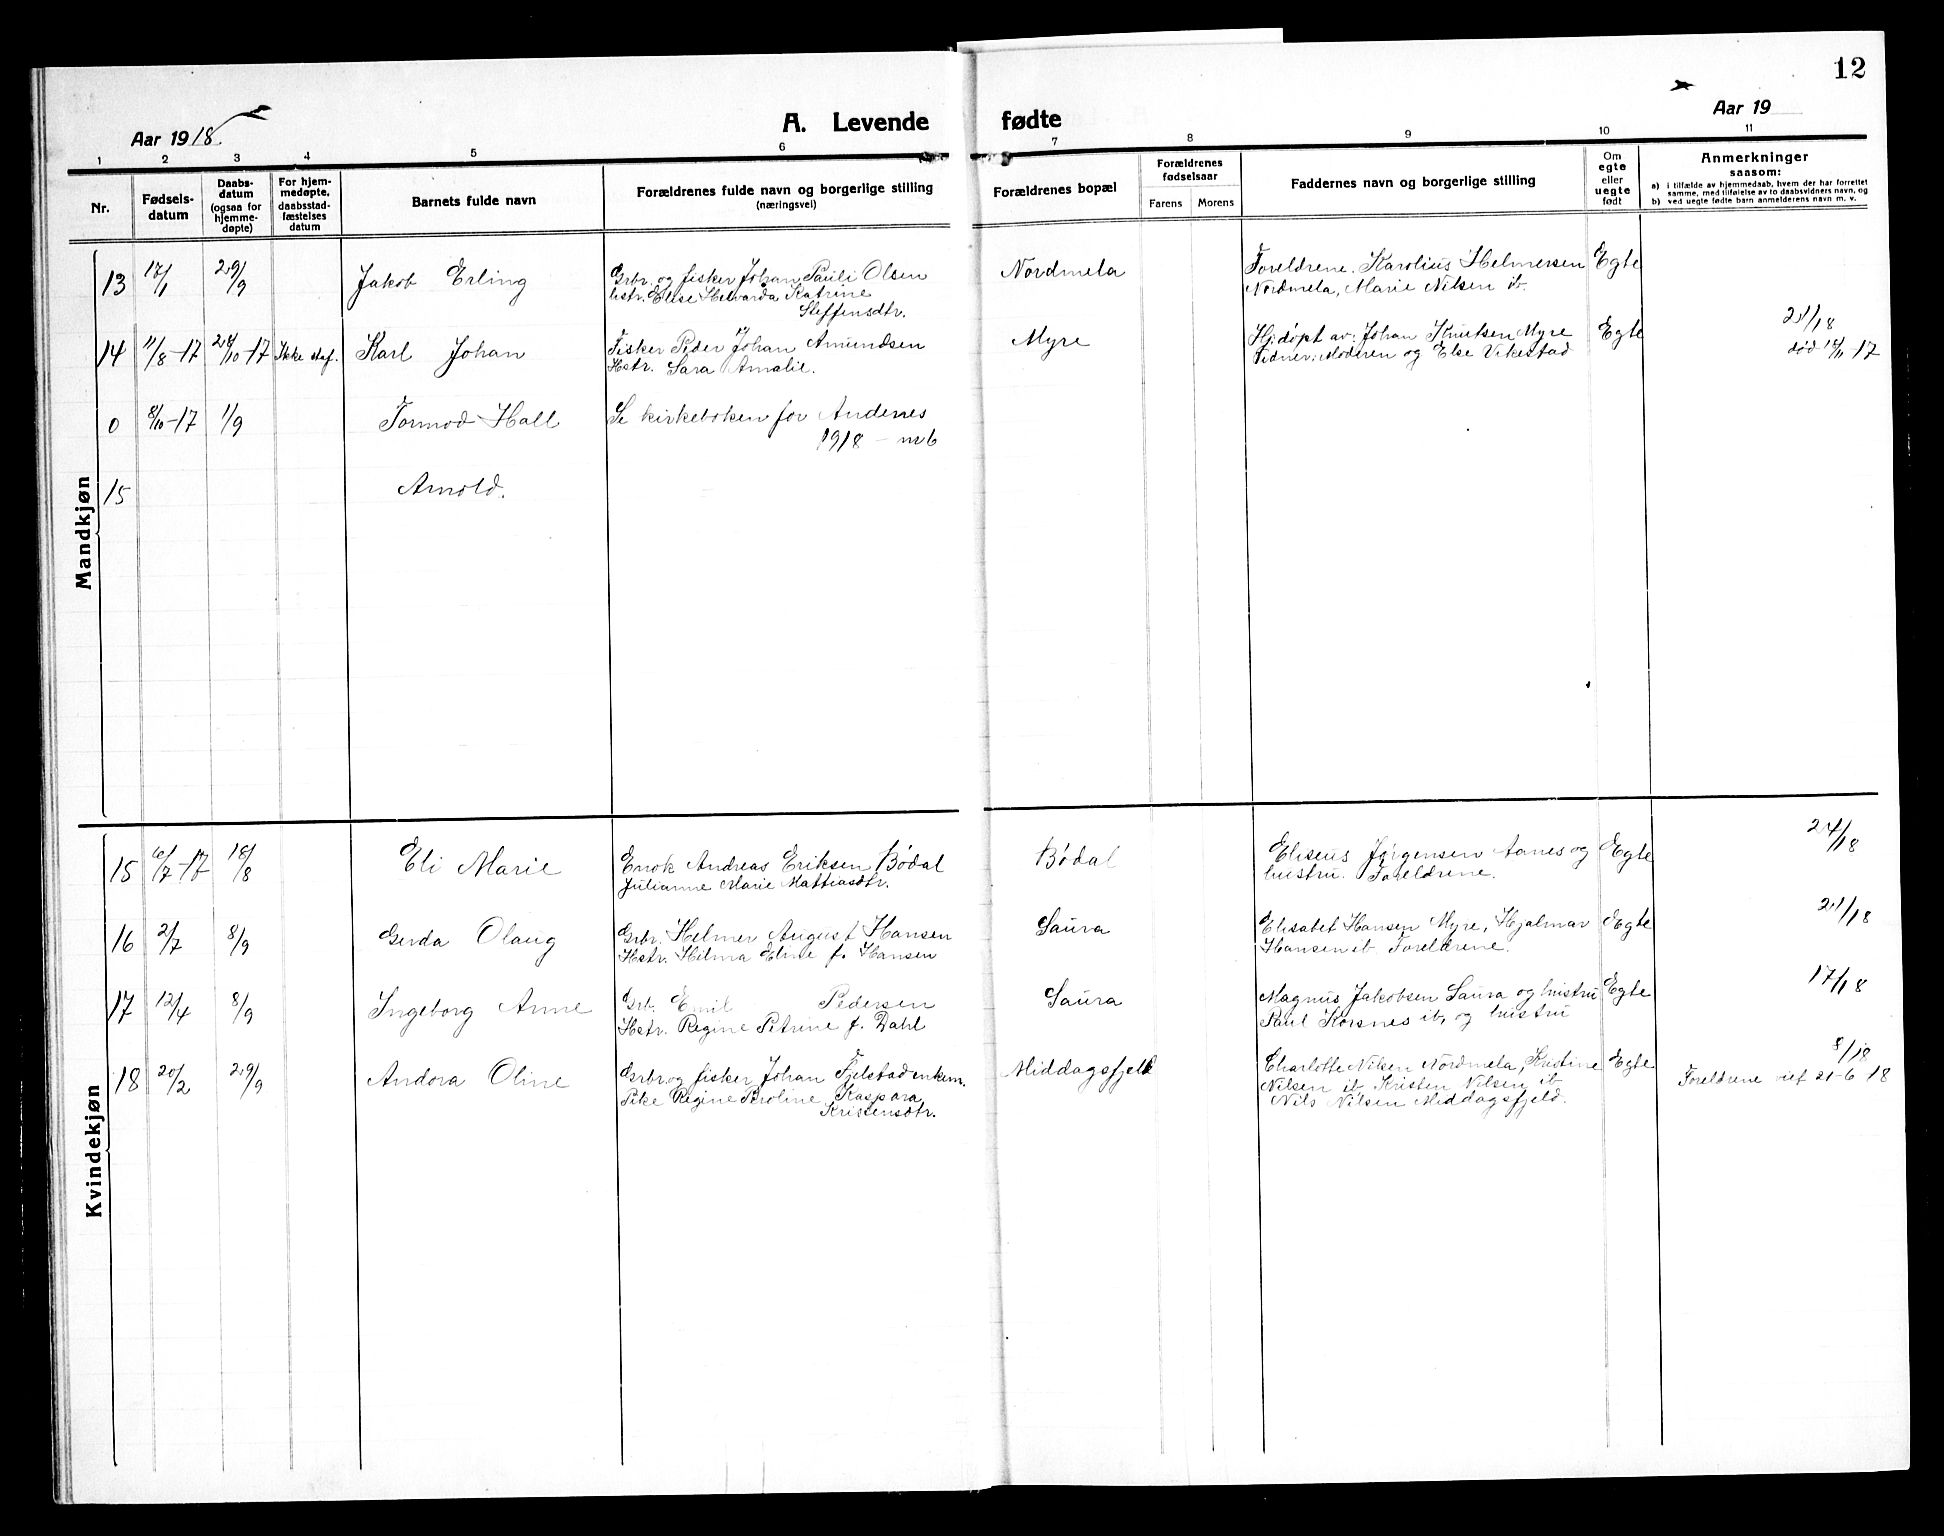 12
Aar 1918
A. Levende fødte
Aar 19
1 2 3 4 5 6 7 8 9 10 11
Nr.
Fødsels-
datum
Daabs-
datum
(ogsaa for
hjemme-
døpte)
For hjem-
medøpte,
daabsstad-
fæstelses
datum
Barnets fulde navn
Forældrenes fulde navn og borgerlige stilling
(næringsvei)
Forældrenes bopæl
Forældrenes
fødselsaar
Farens Morens
Faddernes navn og borgerlige stilling
Om
egte
eller
uegte
født
Anmerkninger
saasom:
a) i tilfælde av hjemmedaab, hvem der har forrettet
samme, med tilføielse av to daabsvidners navn, og
b) ved uegte fødte barn anmelderens navn m. v.
Mandkjøn
13 17/1 29/9 Jakob Erling Grbr. og fisker Johan Pauli Olsen Nordmela Foreldrene. Karolius Helmersen Egte
hstr. Elise Helvarda Katrine Nordmela, Marie Nilsen ib.
Steffensdtr.
14 11/8-17 24/10-17 Ikke staf. Karl Johan Fisker Peder Johan Amundsen Myre Hj.døpt av: Johan Knutsen Myre Egte 21/18
Hstr. Sara Amalie. Vidner: Moderen og Else Vikestad død 14/11-17
0 8/10-17 1/9 Tormod Hall Se kirkeboken for Andenes
1918 - nr 6
15 Arnold.
Kvindekjøn
15 6/7-17 18/8 Eli Marie Enok Andreas Eriksen Bødal Bødal Eliseus Jørgensen Aanes og Egte 24/18
Julianne Marie Mattiasdtr. hustru. Foreldrene.
16 2/7 8/9 Gerda Olaug Grbr. Helmer August Hansen Saura Elisabet Hansen Myre, Hjalmar Egte 21/18
Hstr. Hilma Eline f. Hansen Hansen ib. Foreldrene.
17 12/4 8/9 Ingeborg Anne Grb. Emil Pedersen Saura Magnus Jakobsen Saura og hustru Egte 17/18
Hstr. Regine Petrine f. Dahl Paul Korsnes ib, og hustru
18 20/2 29/9 Andora Oline Grbr og fisker Johan Fjelstad enkem. Middagsfjeld Charlotte Nilsen Nordmela, Kristine Egte 8/18
Pike Regine Peroline Kaspara Nilsen ib Kristen Nilsen ib Foreldrene viet 21-6 18
Kristensdtr. Nils Nilsen Middagsfjeld.